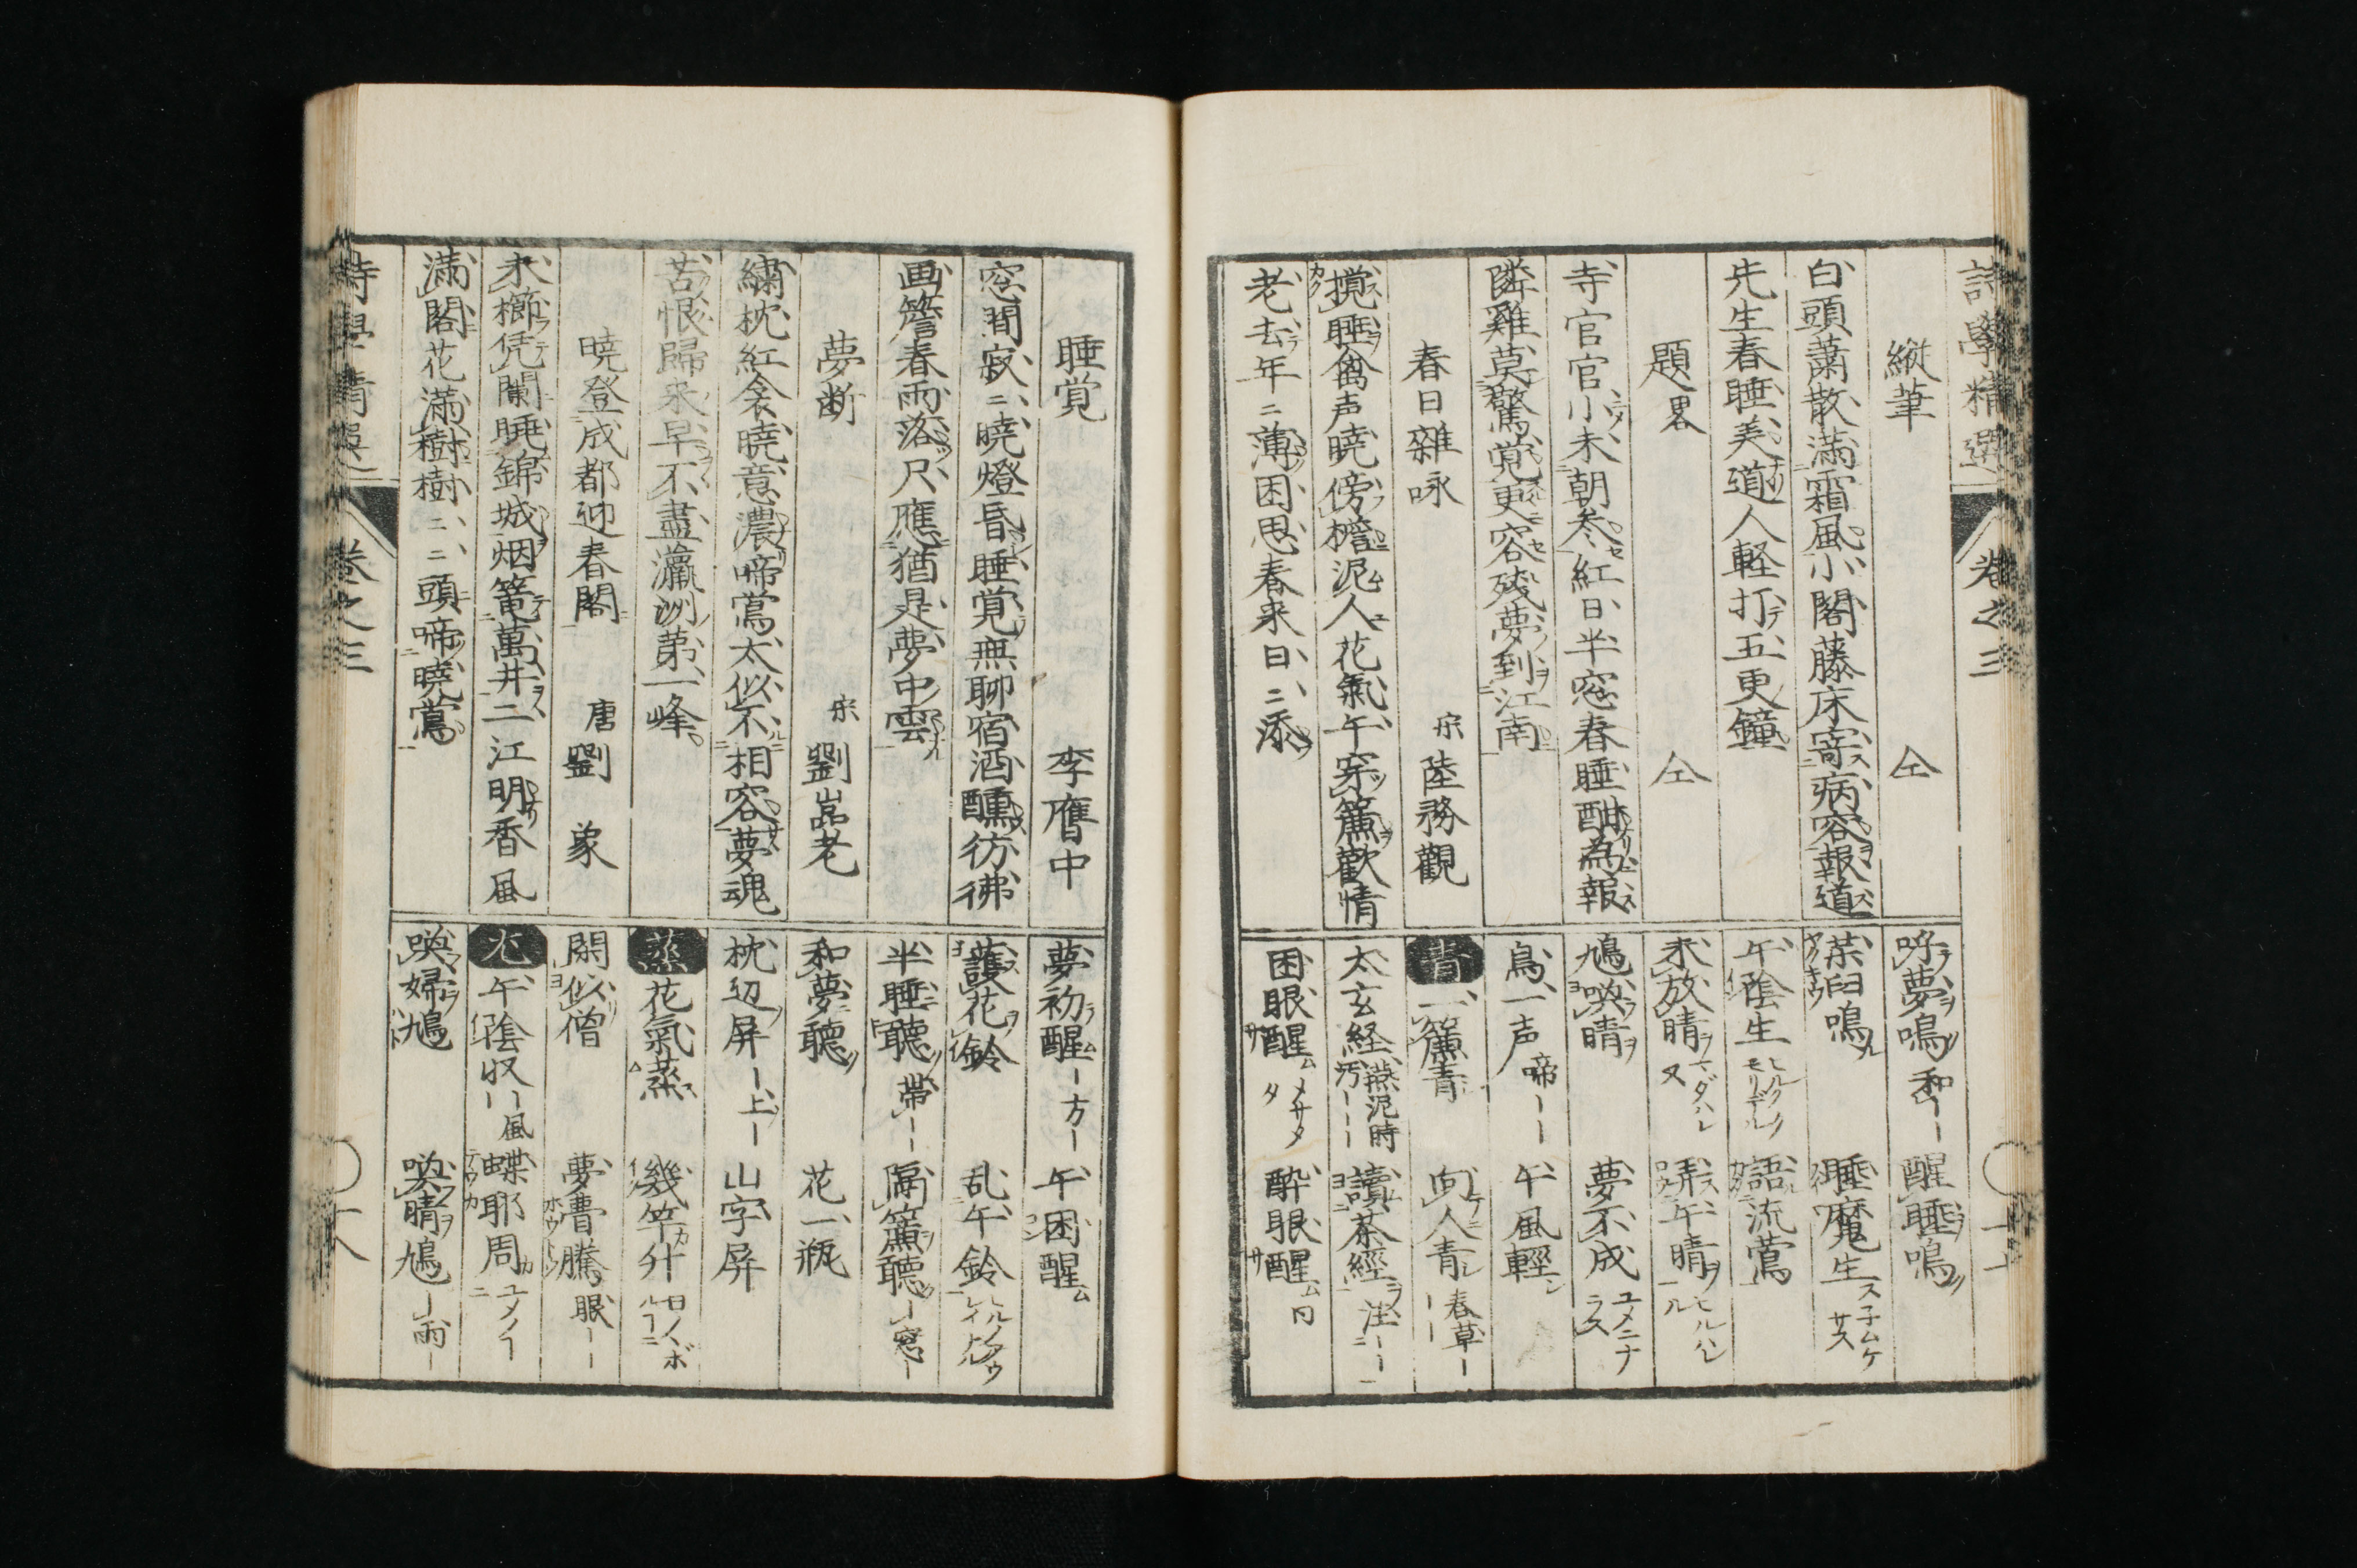 詩學精選
卷之三
縱筆 仝
白頭蕭散滿霜風小閣藤床寄病容報道
先生春睡美道人軽打五更鐘
題畧 仝
寺官官小未朝参紅日半窓春睡酣為報
隣雞莫驚覚更容残夢到江南
春日雜咏 宋陸務觀
攪睡禽声暁傍檐泥人花氣午穿簾歡情
老去年ニ薄困思春来日ニ添
呼夢鳴 和ーー 醒睡鳴
茶臼鳴 睡魔生
午陰生 語流鶯
未放晴 弄午晴
鳩喚晴 夢不成
鳥一声 啼ーー 午風輕
青 一簾青 向人青 春草ー
太玄経 燕泥時汚ーーー 讀茶經 注ーー
困眼醒 酔眼醒
睡覚 李膺中
窓間寂ニ暁燈昏睡覚無聊宿酒醺彷彿
画簷春雨落尺應猶是夢中雲
夢断 宋劉嵓老
繍枕紅衾暁意濃啼鶯太似不相容夢魂
苦恨歸来早不盡瀛洲第一峰
暁登成都迎春閣 唐劉象
未櫛凭闌眺錦城烟篭萬井二江明香風
滿閣花滿樹樹ニニ頭啼暁鶯
夢初醒 ー方ー 午困醒
護花鈴 乱午鈴
半睡聽 帯ーー 隔簾聽 ー窓ー
和夢聽 花一瓶
枕辺屏 ー上ー 山字屏
蒸 花氣蒸 幾竿升
閑似僧 夢曹騰 眠ーー
尤 午陰収 ーー風 蝶耶周
喚婦鳩 喚晴鳩 ー雨ー
卷之三
十八